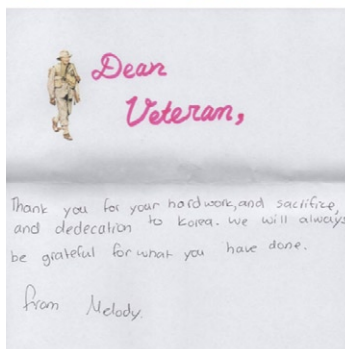 Dear
Veteran,
Thank you for your hardwork, and saclifize,
and dedecation to Korea. We will always
be grateful for what you have done.
from Melody.